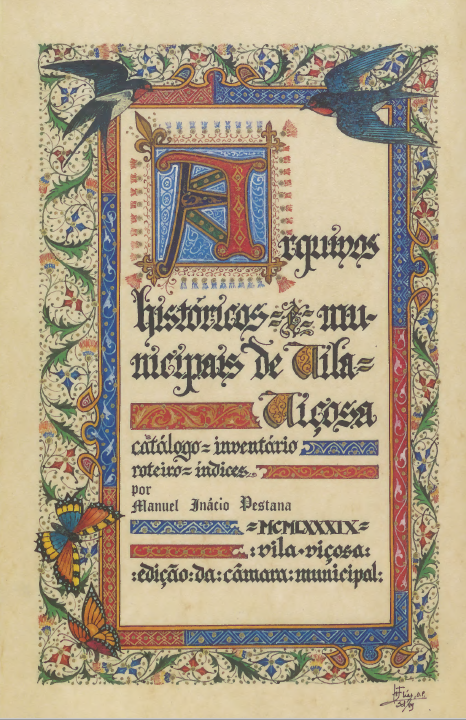 Arquivos
históricos = e = mu-
nicipais de Vila =
Viçosa
catálogo = inventário
roteiro = índices
por
Manuel Inácio Pestana
= MCMLXXXIX =
: vila · viçosa :
: edição : da : câmara : municipal :